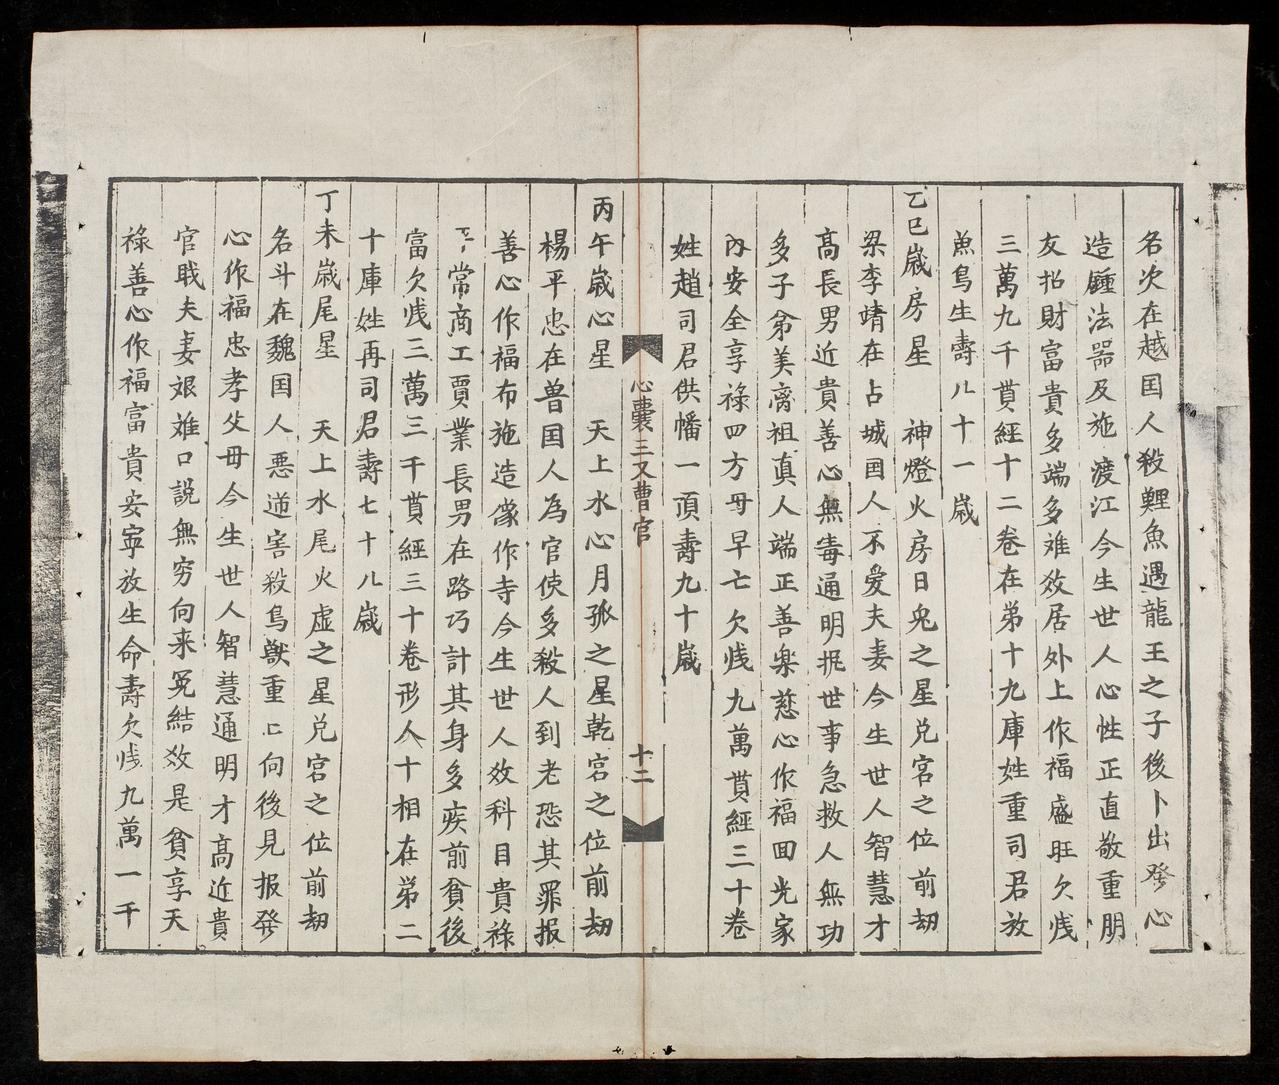 名次在越国人殺鯉魚遇龍王之子後卜出發心
造鍾法器及施渡江今生世人心性正直敬重朋
友招財富貴多端多难效居外上作福盛旺欠㦮
三萬九千貫經十二卷在弟十九庫姓重司君放
魚鳥生壽八十一歲
乙巳歲房星 神燈火房日兔之星兑宮之位前劫
梁李靖在占城国人不爱夫妻今生世人智慧才
高長男近貴善心無毒通明抚世事急救人無功
多子弟美斎祖真人端正善楽慈心作福回光家
内安全享祿四方母早亡欠㦮九萬貫經三十卷
姓趙司君供幡一頂壽九十歲
心囊三又曹官
十二
丙午歲心星 天上水心月孤之星乾宮之位前劫
楊平忠在普国人為官使多殺人到老恐其罪报
善心作福布施造像作寺今生世人效科目貴祿
常商工賈業長男在路巧計其身多疾前貧後
富欠㦮三萬三千貫經三十卷形人十相在弟二
十庫姓再司君壽七十八歲
丁未歲尾星 天上水尾火虚之星兑宮之位前劫
名斗在魏国人悪逆害殺鳥獸重〻向後見报發
心作福忠孝父母今生世人智慧通明才高近貴
官戝夫妻娘难口説無穷向来冤結效是貧享天
祿善心作福富貴安寧放生命壽欠㦮九萬一千